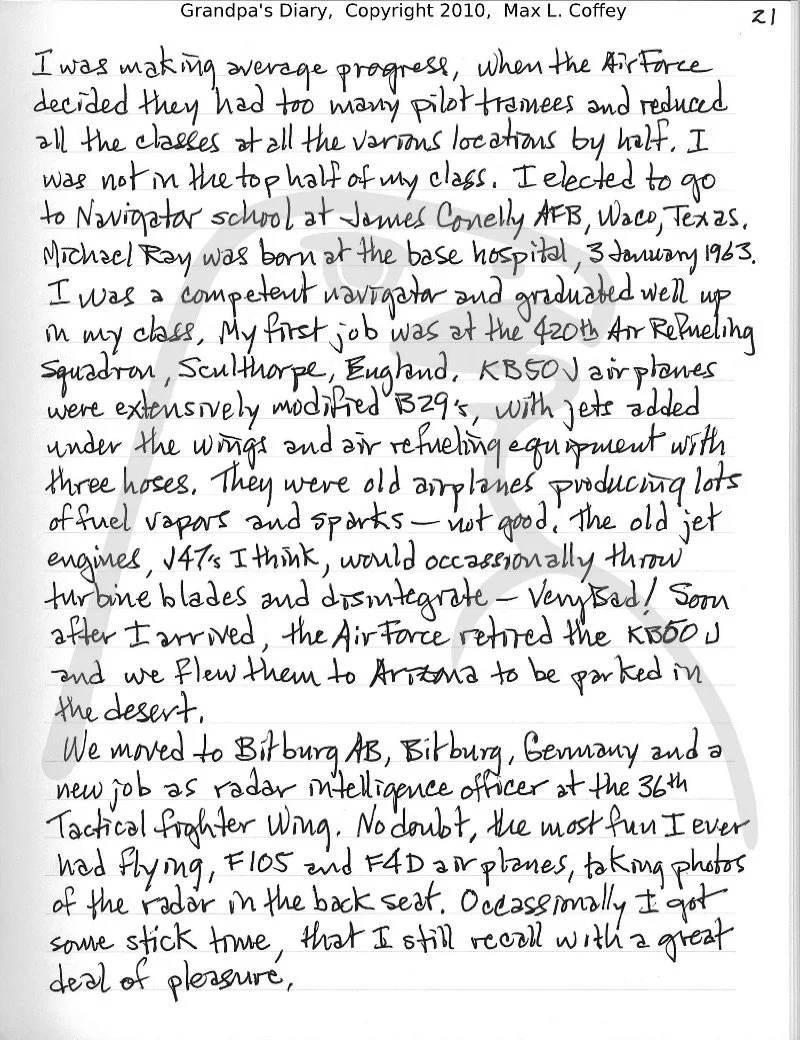 Grandpa's Diary, Copyright 2010, Max L. Coffey
21
I was making average progress, when the Air Force
decided they had too many pilot trainees and reduced
all the classes at all the various locations by half. I
was not in the top half of my class. I elected to go
to Navigator school at James Conelly AFB, Waco, Texas.
Michael Ray was born at the base hospital, 3 January 1963.
I was a competent navigator and graduated well up
in my class. My first job was at the 420th Air Refueling
Squadron, Sculthorpe, England. KB50J airplanes
were extensively modified B29's, with jets added
under the wings and air refueling equipment with
three hoses. They were old airplanes producing lots
of fuel vapors and sparks — not good. The old jet
engines, J47's I think, would occassionally throw
turbine blades and disintegrate — Very Bad! Soon
after I arrived, the Air Force retired the KB50J
and we flew them to Arizona to be parked in
the desert.
We moved to Bitburg AB, Bitburg, Germany and a
new job as radar intelligence officer at the 36th
Tactical fighter Wing. No doubt, the most fun I ever
had flying, F105 and F4D airplanes, taking photos
of the radar in the back seat. Occassionally I got
some stick time, that I still recall with a great
deal of pleasure.